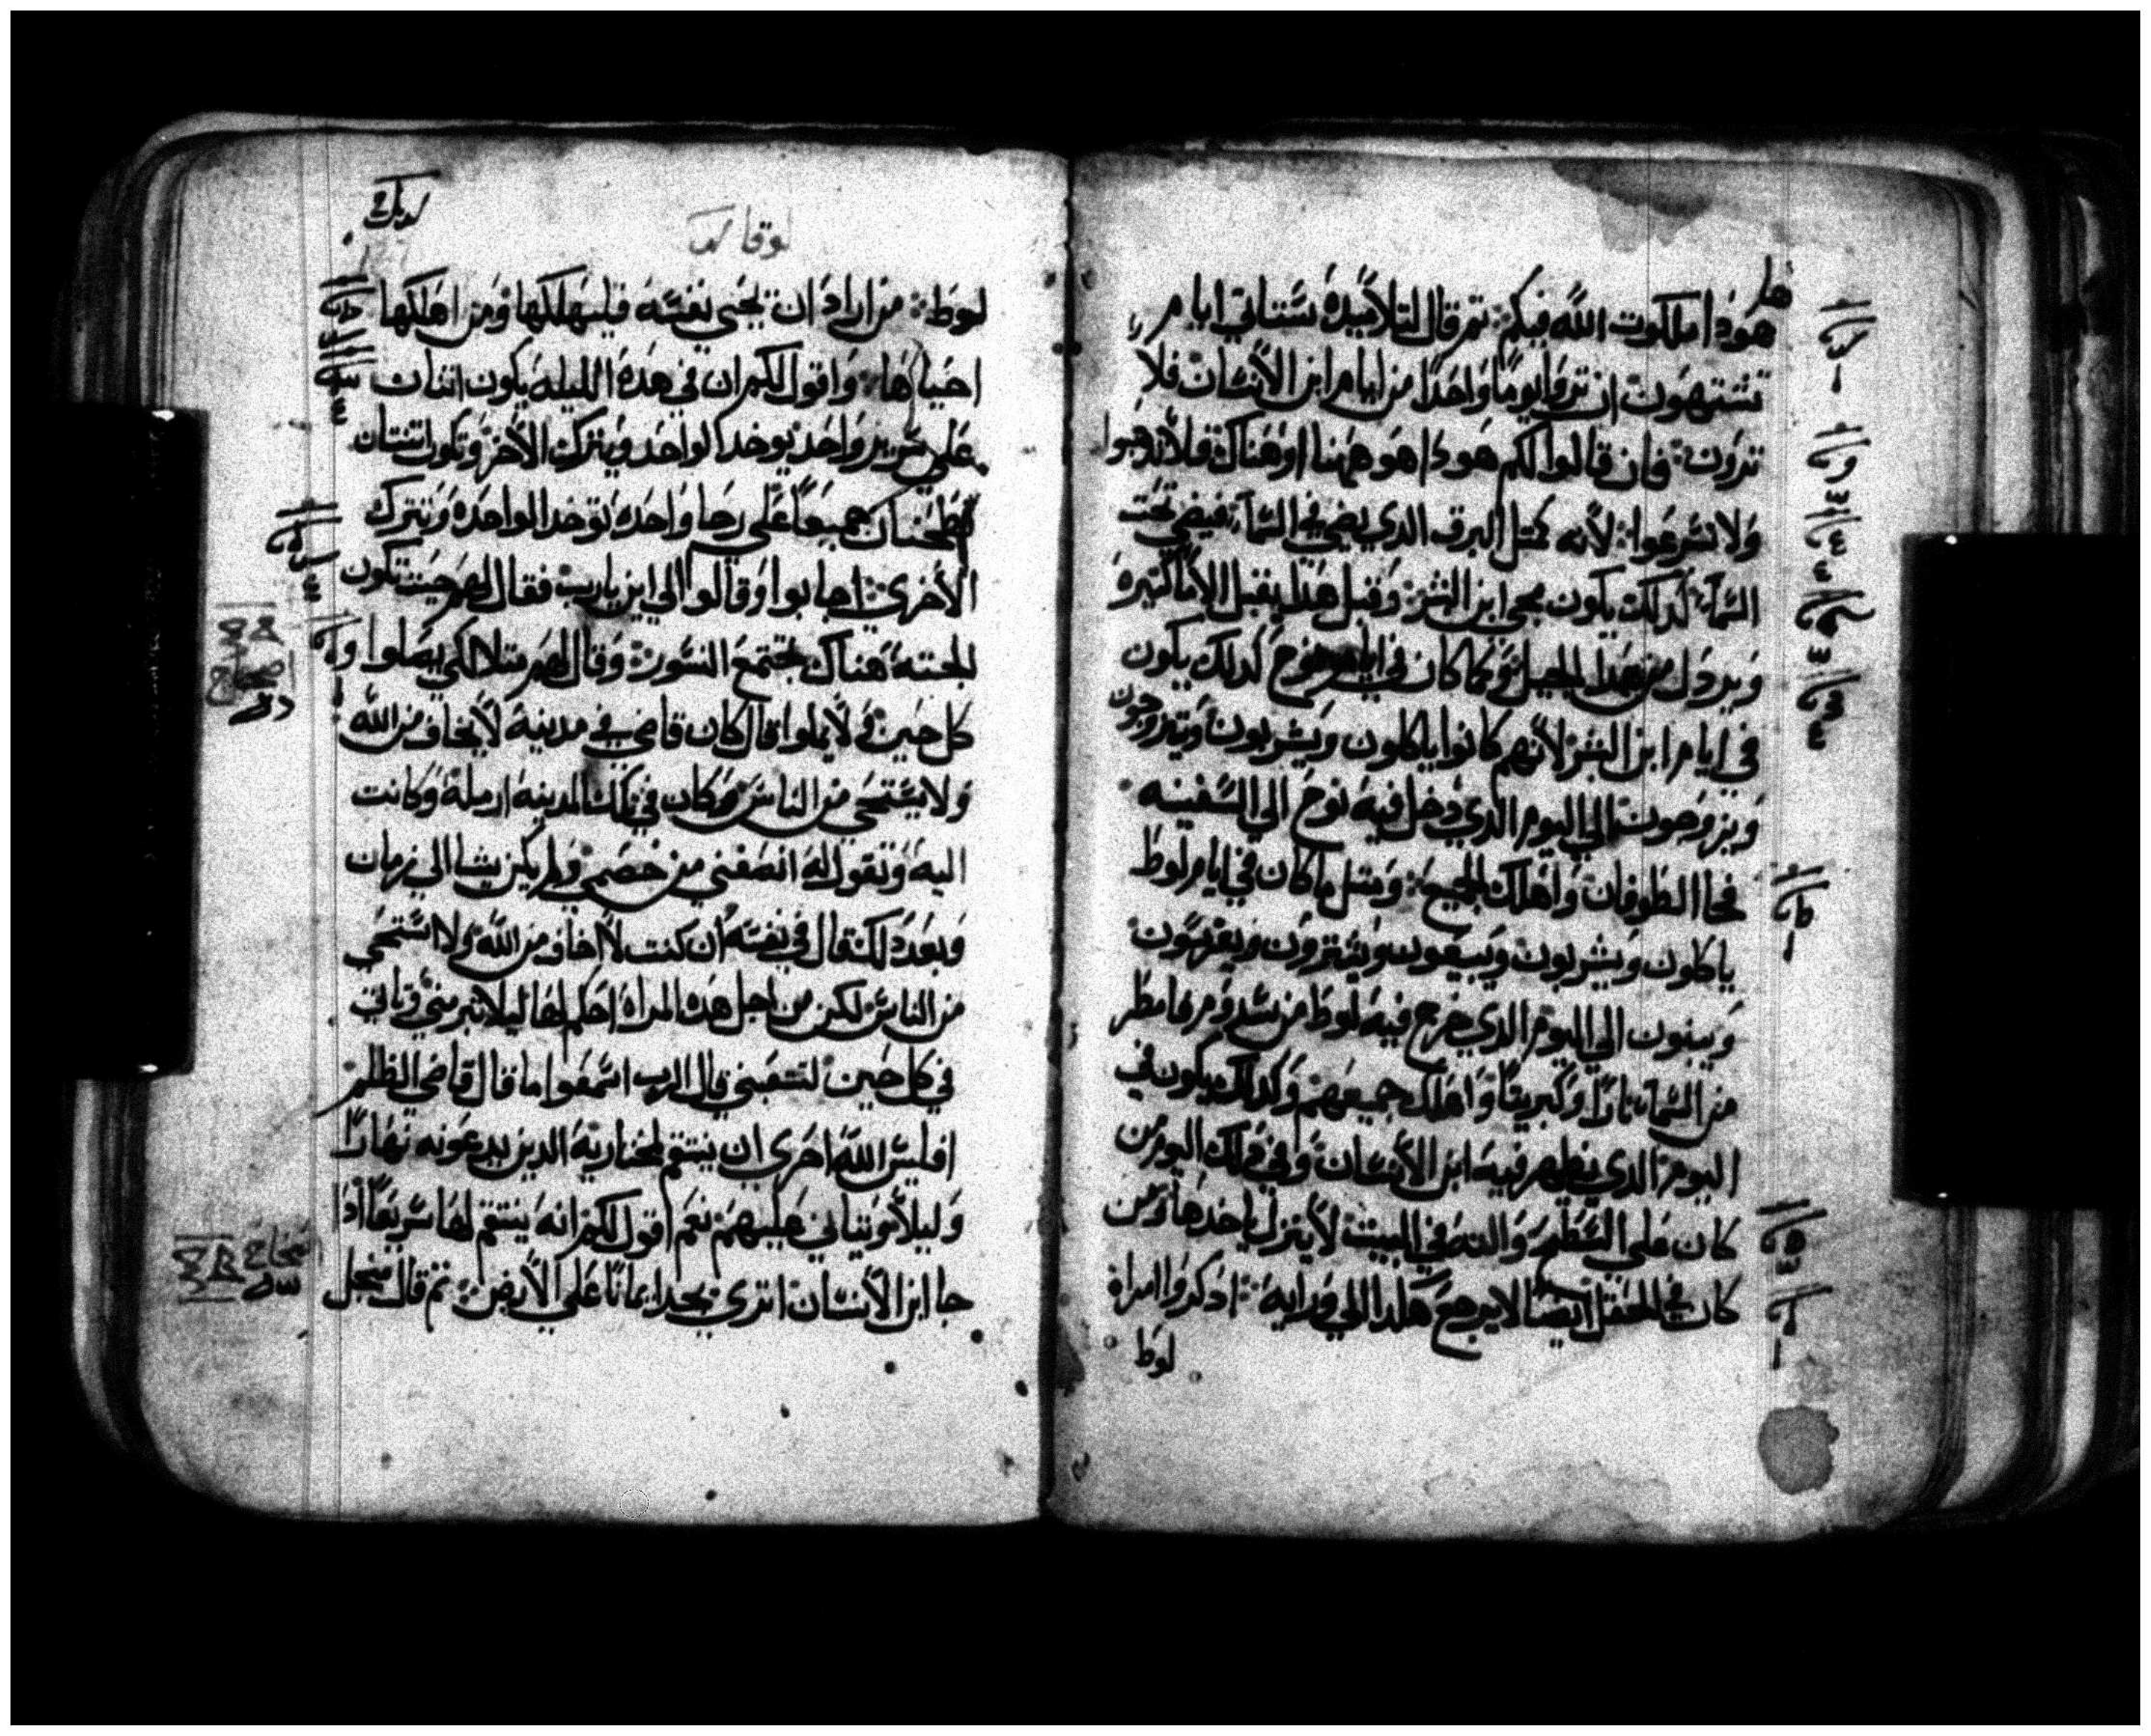 هودا ملكوت الله فيكم: تم قال لتلاميده ستاتي ايام
تشتهون ان تروا يوما واحدا من ايام ابن الأنسان فلا
ترون: فان قالوا لكم هودا هو ههنا او هناك فلا تدهبوا
ولا تسرعوا: لأنه كمتل البرق الدي يضي في السمآ فيضي تحت
السمآ: كدلك يكون مجي ابن البشر: وقبل هدا يقبل الأما كتيره
ويردل من هدا الجيل وكما كان في ايام نوح كدلك يكون
في ايام ابن البشر لأنهم كانوا ياكلون ويشربون ويتزوجون
ويزوجون الي اليوم الدي دخل فيه نوح الي السفينه
فجا الطوفان واهلك الجميع: ومتل ما كان في ايام لوط
ياكلون ويشربون ويبيعون ويشترون ويغرسون
ويبنون الي اليوم الدي خرج فيه لوط من سدوم فامطر
من السمآ نارا وكبريتا واهلك جميعهم وكدلك يكون في
اليوم الدي يظهر فيه ابن الأنسان وفي دلك اليوم من
كان علي السطح والته في البيت لا ينزل ياخدها ومن
كان في الحقل ايضا لا يرجع هكدا الي ورايه: ادكروا امراة
لوط
لوقا
لوط: من اراد ان يحيي نفسه فليهلكها ومن اهلكها
احياها: واقول لكم ان في هده الليله يكون اتنان
علي سرير واحد يوخد الواحد ويترك الأخر وتكون اتنتان
تطحنان جميعا علي رحا واحده توخد الواحده وتترك
الأخري: اجابوا وقالوا الي اين يارب فقال لهم حيت تكون
الجته هناك تجتمع النسور: وقال لهم متلا لكي يصلوا
كل حين ولا يملوا قال كان قاضي في مدينه لا يخاف من الله
ولا يستحي من الناس وكان في تلك المدينه ارمله وكانت
اليه وتقول له انصفني من خصمي ولم يكن يشا الي زمان
وبعد دلك قال في نفسه ان كنت لا اخاف من الله ولا استحي
من الناس لكن من اجل هده المراه احكم لها ليلا تبرمني وتاتي
في كل حين لتتعبني قال الرب اسمعوا ما قال قاضي الظلم
افليس الله احري ان ينتقم لمختاريه الدين يدعونه نهارا
وليلا ويتاني عليهم نعم اقول لكم انه ينتقم لها سريعا ادا
جا ابن الأنسان اتري يجد ايمانا علي الأرض: تم قال من اجل